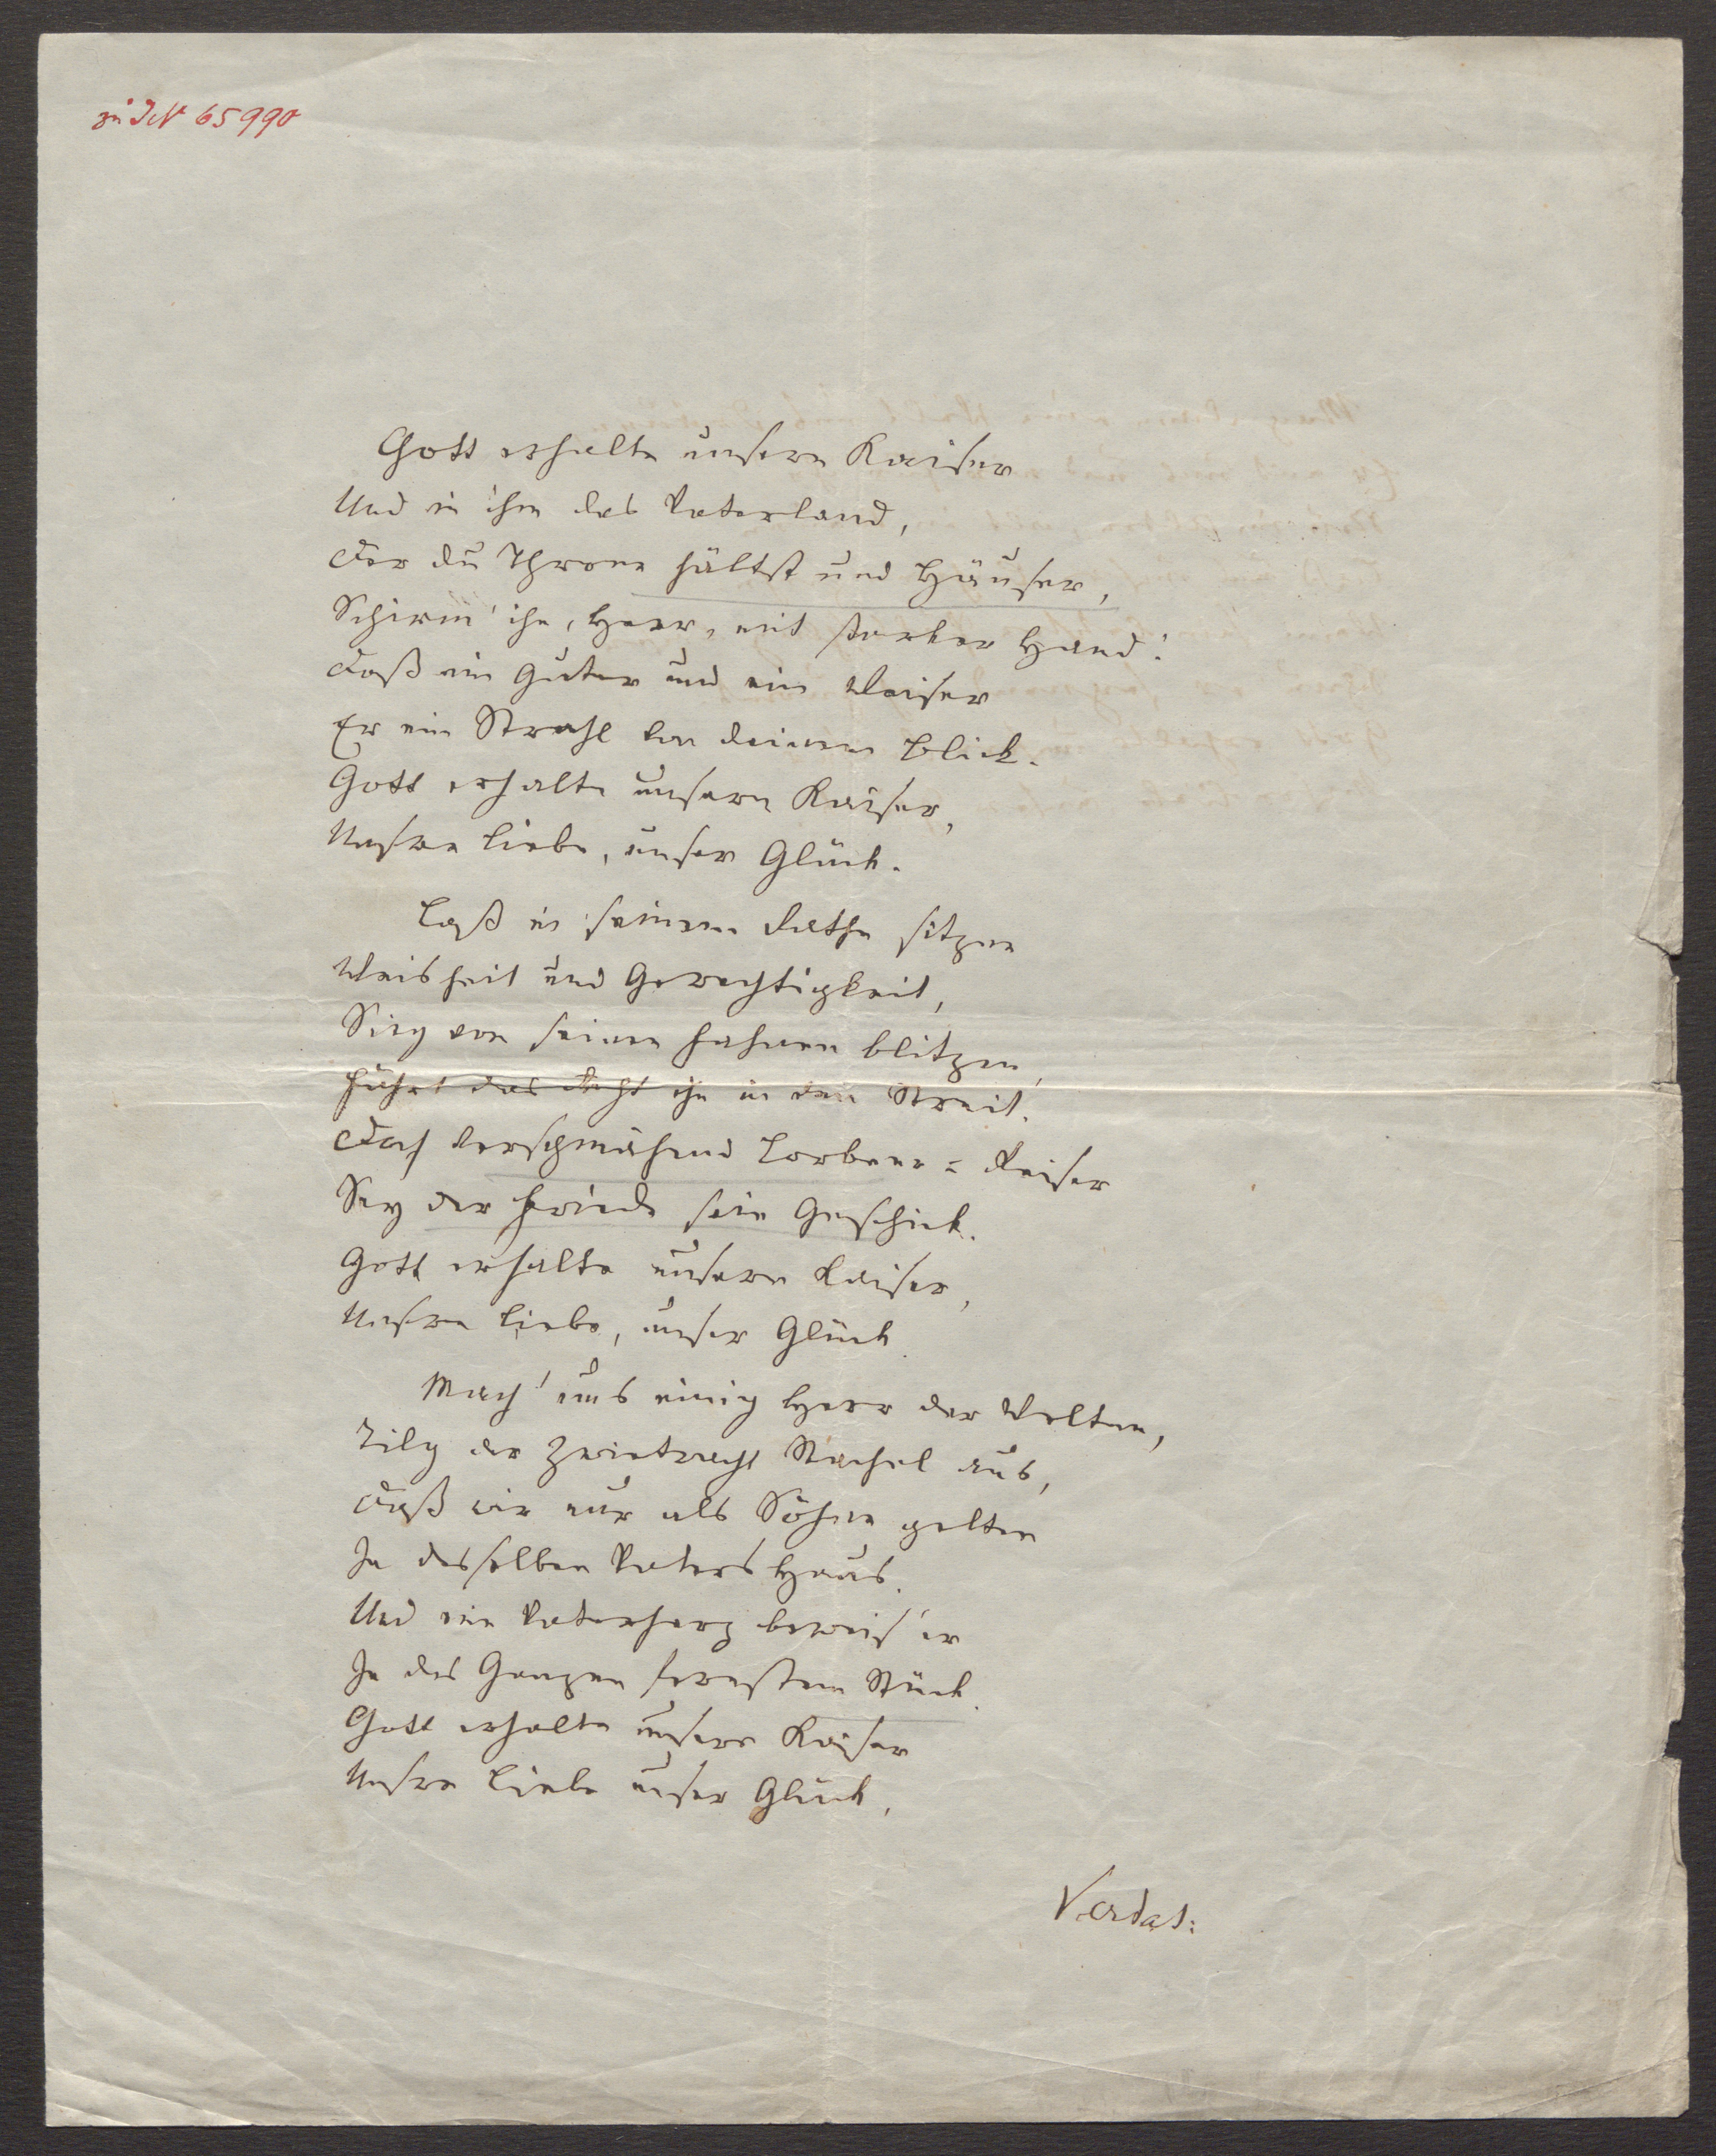 zu IN 65990
Gott erhalte unsern Kaiser
Und in ihm das Vaterland,
Der du Throne hältst und Häuser,
Schirm' ihn, Herr, mit starker Hand!
Daß ein Guter und ein Weiser
Er ein Strahl von deinem Blick.
Gott erhalte unsern Kaiser,
Unsre Liebe, unser Glück.
Laß in seinem Rathe sitzen
Weisheit und Gerechtigkeit,
Sieg von seinen Fahnen blitzen,
Führt das Recht ihn in den Streit.
Doch verschmähend Lorbeer-Reiser
Sey der Friede sein Geschick.
Gott erhalte unsern Kaiser,
Unsre Liebe, unser Glück.
Mach' uns einig Herr der Welten,
Tilg der Zwietracht Stachel aus,
Daß wir nur als Söhne gelten
In desselben Vaters Haus.
Und ein Vaterherz beweis' er
In des Ganzen fernstem Stück.
Gott erhalte unsern Kaiser
Unsre Liebe unser Glück.
Vertat: